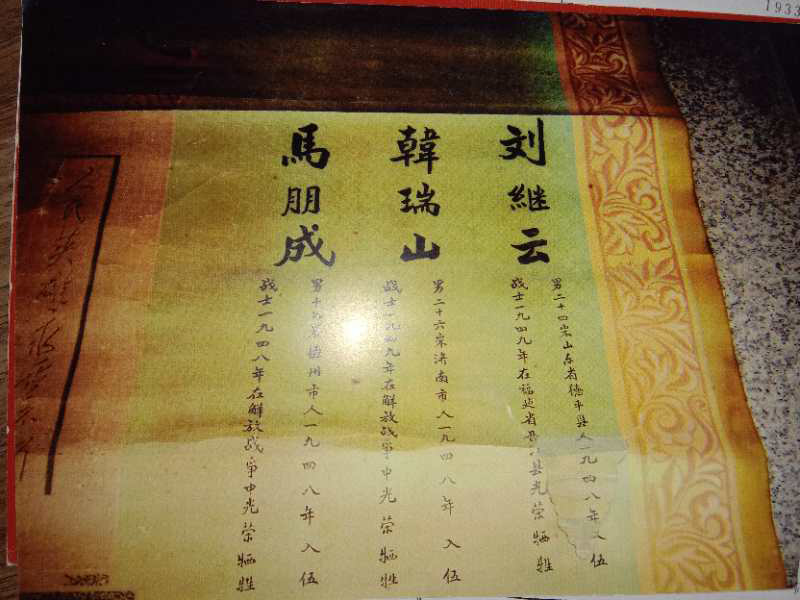 1933
刘继云
男二十四岁山东省德平县人一九四八年入伍
战士一九四九年在福建省县光荣牺牲
韓瑞山
男二十六岁济南市人一九四八年入伍
战士一九四九年在解放战争中光荣牺牲
馬朋成
男十九岁德州市人一九四八年入伍
战士一九四八年在解放战争中光荣牺牲
人民英雄永垂不朽